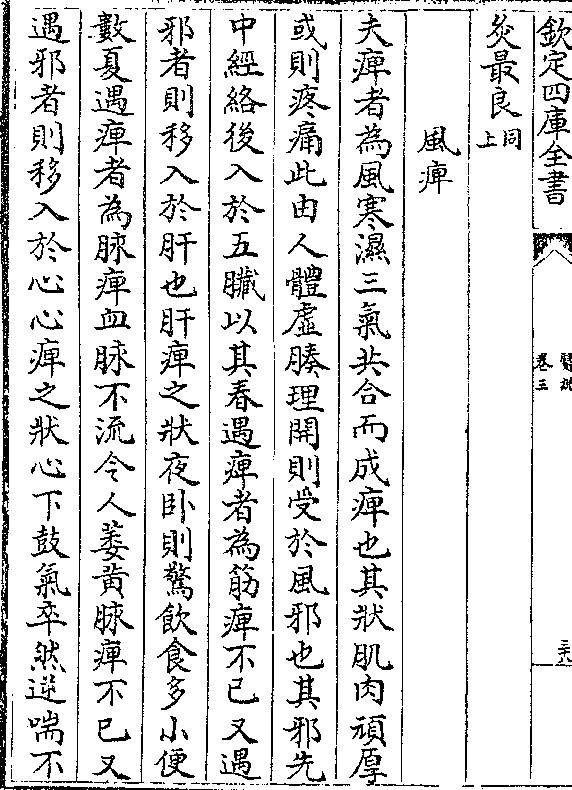 欽定四庫全書
醫說
卷三
三八
灸最良同上
風痺
夫痺者為風寒濕三氣共合而成痺也其狀肌肉頑厚
或則疼痛此由人體虛腠理開則受於風邪也其邪先
中經絡後入於五臟以其春遇痺者為筋痺不已又遇
邪者則移入於肝也肝痺之狀夜卧則驚飲食多小便
數夏遇痺者為脉痺血脉不流令人萎黃脉痺不已又
遇邪者則移入於心心痺之狀心下鼓氣卒然逆喘不